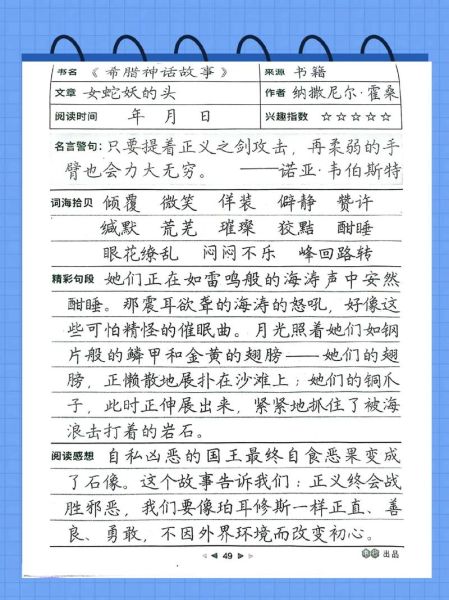 书名 《希腊神话故事》 来源 书籍
文章 女蛇妖的头 作者 纳撒尼尔·霍桑
阅读时间 年 月 日 兴趣指数 ☆☆☆☆☆
名言警句：只要提着正义之剑攻击，再柔弱的手
臂也会力大无穷。 ——诺亚·韦伯斯特
词海拾贝 倾覆 微笑 佯装 僻静 赞许
缄默 荒芜 璀璨 狡黠 酣睡
眼花缭乱 闷闷不乐 峰回路转
精彩句段 她们正在如雷鸣般的海涛声中安然
酣睡。那震耳欲聋的海涛的怒吼，好像这
些可怕精怪的催眠曲。月光照着她们如钢
片般的鳞甲和金黄的翅膀——她们的翅
膀，正懒散地展扑在沙滩上；她们的铜爪
子，此时正伸展出来，紧紧地抓住了被海
浪击打着的岩石。
阅读感想 自私凶恶的国王最终自食恶果变成
了石像。这个故事告诉我们：正义终会战
胜邪恶，我们要像珀耳修斯一样正直、善
良、勇敢，不因外界环境而改变初心。
49
出品